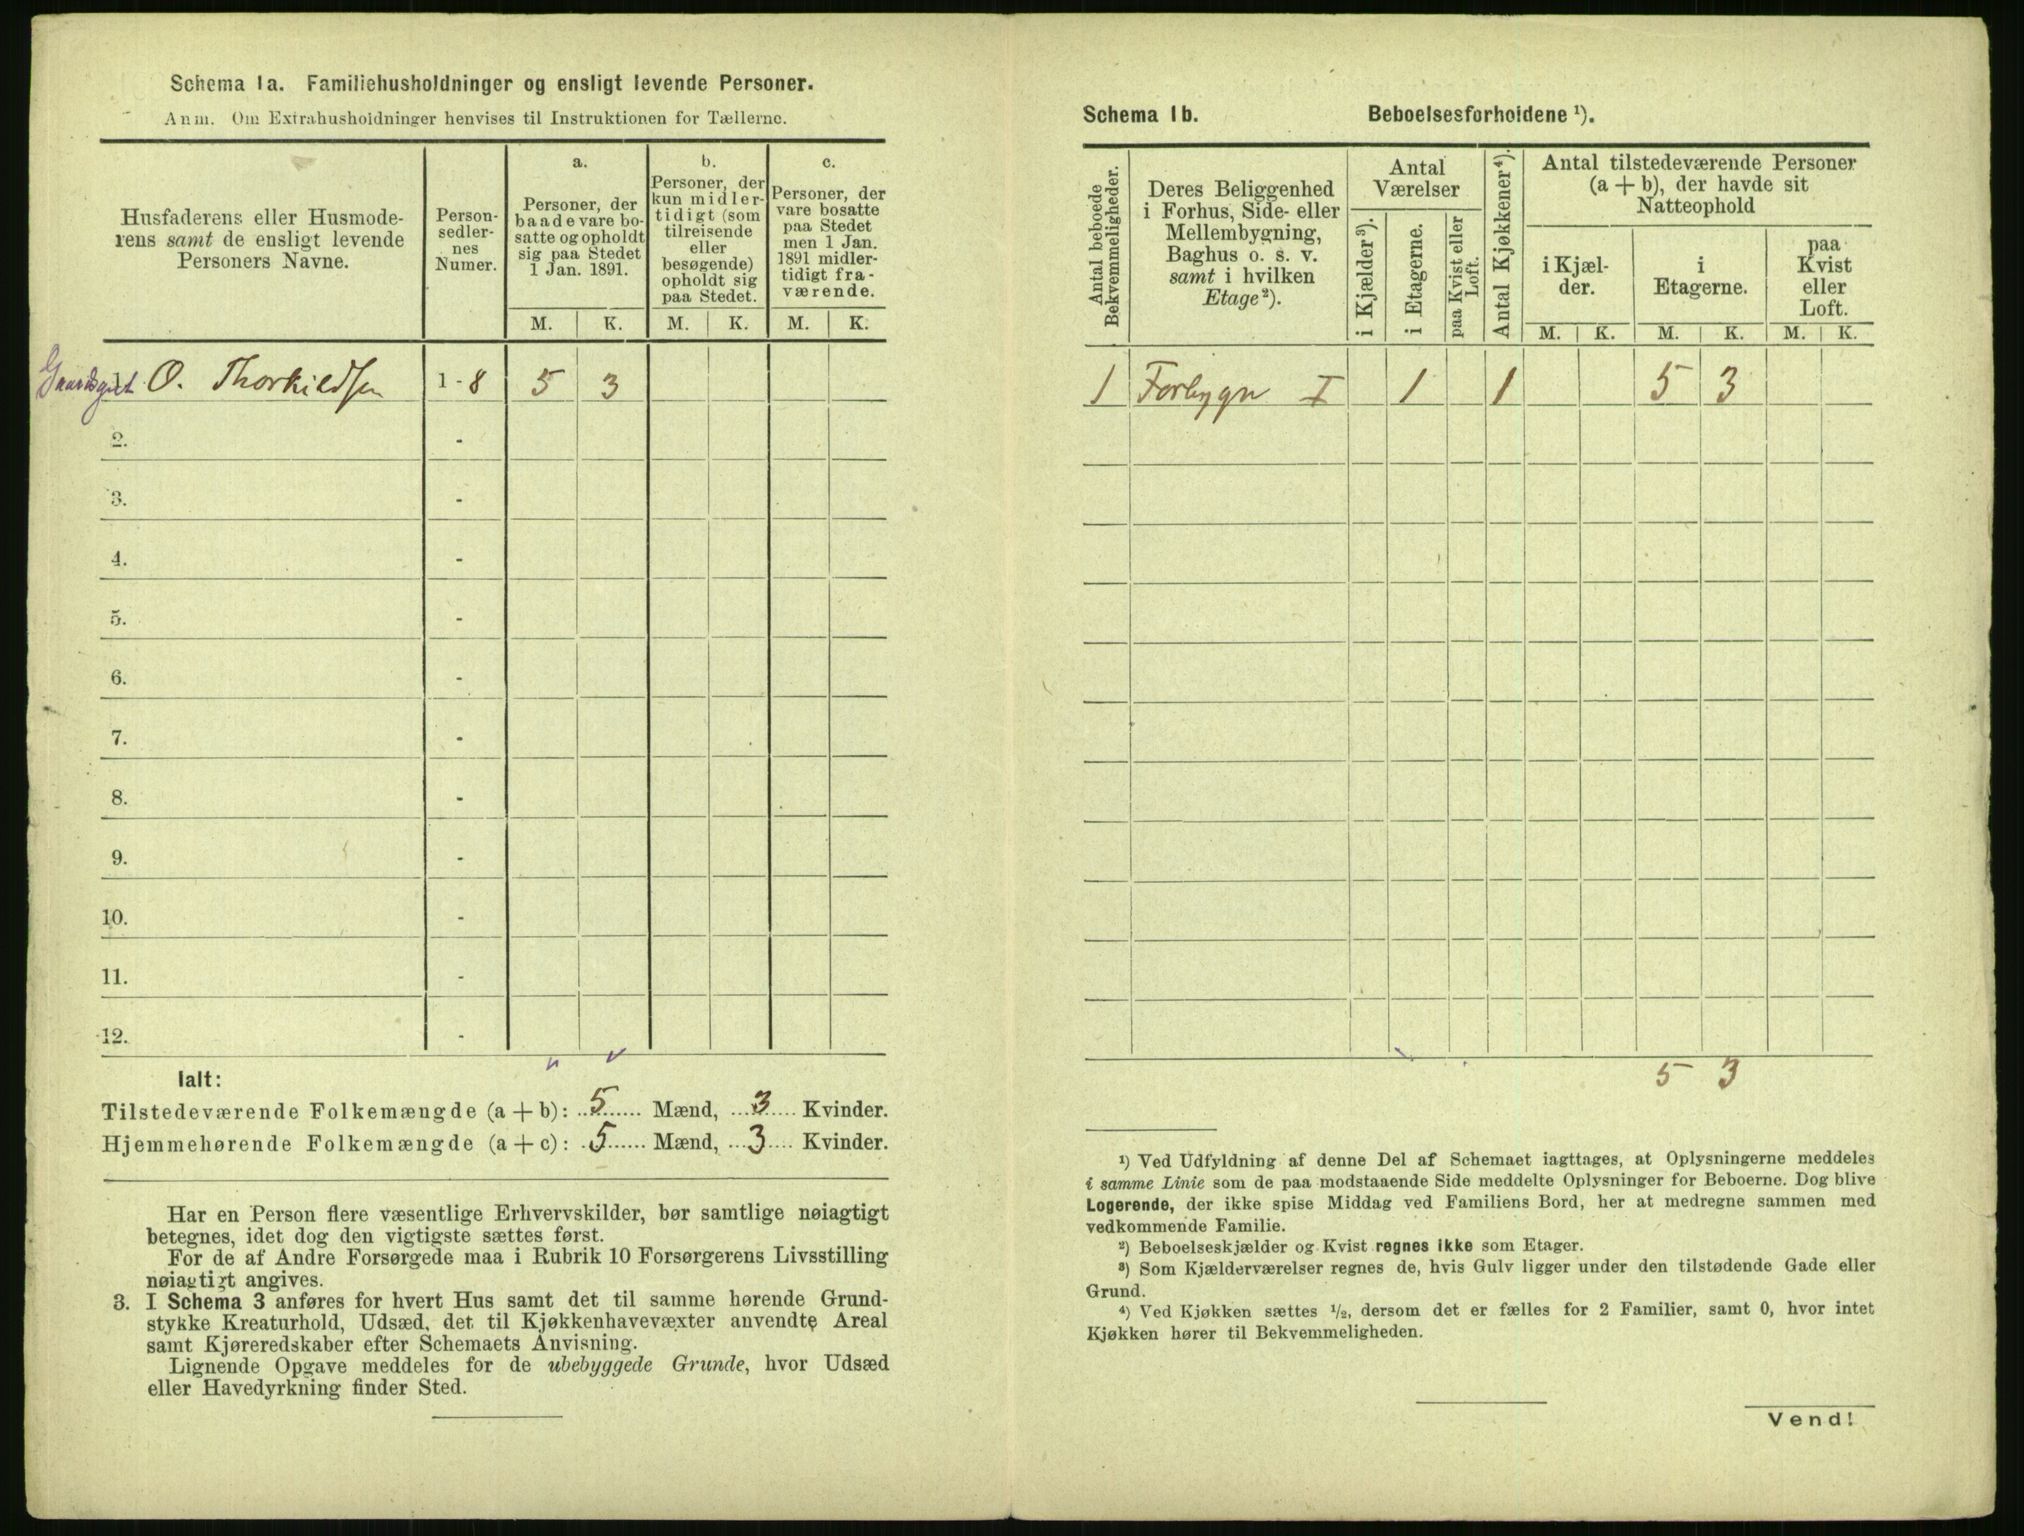 Schema 1a. Familiehusholdninger og ensligt levende Personer.
Anm. Om Extrahusholdninger henvises til Instruktionen for Tællerne.
Husfaderens eller Husmode-
rens samt de ensligt levende
Personers Navne.
Person-
sedler-
nes
Numer.
a.
Personer, der
baade vare bo-
satte og opholdt
sig paa Stedet
1 Jan. 1891.
b.
Personer, der
kun midler-
tidigt (som
tilreisende
eller
besøgende)
opholdt sig
paa Stedet.
c.
Personer, der
vare bosatte
paa Stedet
men 1 Jan.
1891 midler-
tidigt fra-
værende.
M. K. M. K. M. K.
O. Thorkildsen 1 - 8 5 3
2. -
3. -
4. -
5. -
6. -
7. -
8. -
9. -
10. -
11. -
12. -
Ialt:
Tilstedeværende Folkemængde (a + b): 5 Mænd, 3 Kvinder.
Hjemmehørende Folkemængde (a + c): 5 Mænd, 3 Kvinder.
Har en Person flere væsentlige Erhvervskilder, bør samtlige nøiagtigt
betegnes, idet dog den vigtigste sættes først.
For de af Andre Forsørgede maa i Rubrik 10 Forsørgerens Livsstilling
nøiagtigt angives.
3. I Schema 3 anføres for hvert Hus samt det til samme hørende Grund-
stykke Kreaturhold, Udsæd, det til Kjøkkenhavevæxter anvendte Areal
samt Kjøreredskaber efter Schemaets Anvisning.
Lignende Opgave meddeles for de ubebyggede Grunde, hvor Udsæd
eller Havedyrkning finder Sted.
Schema 1b. Beboelsesforholdene ¹).
Antal beboede
Bekvemmeligheder.
Deres Beliggenhed
i Forhus, Side- eller
Mellembygning,
Baghus o. s. v.
samt i hvilken
Etage ²).
Antal
Værelser
i Kjælder ³).
i Etagerne.
paa Kvist eller
Loft.
Antal Kjøkkener ⁴).
Antal tilstedeværende Personer
(a + b), der havde sit
Natteophold
i Kjæl-
der.
i
Etagerne.
paa
Kvist
eller
Loft.
M. K. M. K. M. K.
1 Forbygn I 1 1 5 3
5 3
¹) Ved Udfyldning af denne Del af Schemaet iagttages, at Oplysningerne meddeles
i samme Linie som de paa modstaaende Side meddelte Oplysninger for Beboerne. Dog blive
Logerende, der ikke spise Middag ved Familiens Bord, her at medregne sammen med
vedkommende Familie.
²) Beboelseskjælder og Kvist regnes ikke som Etager.
³) Som Kjælderværelser regnes de, hvis Gulv ligger under den tilstødende Gade eller
Grund.
⁴) Ved Kjøkken sættes ½, dersom det er fælles for 2 Familier, samt 0, hvor intet
Kjøkken hører til Bekvemmeligheden.
Vend!